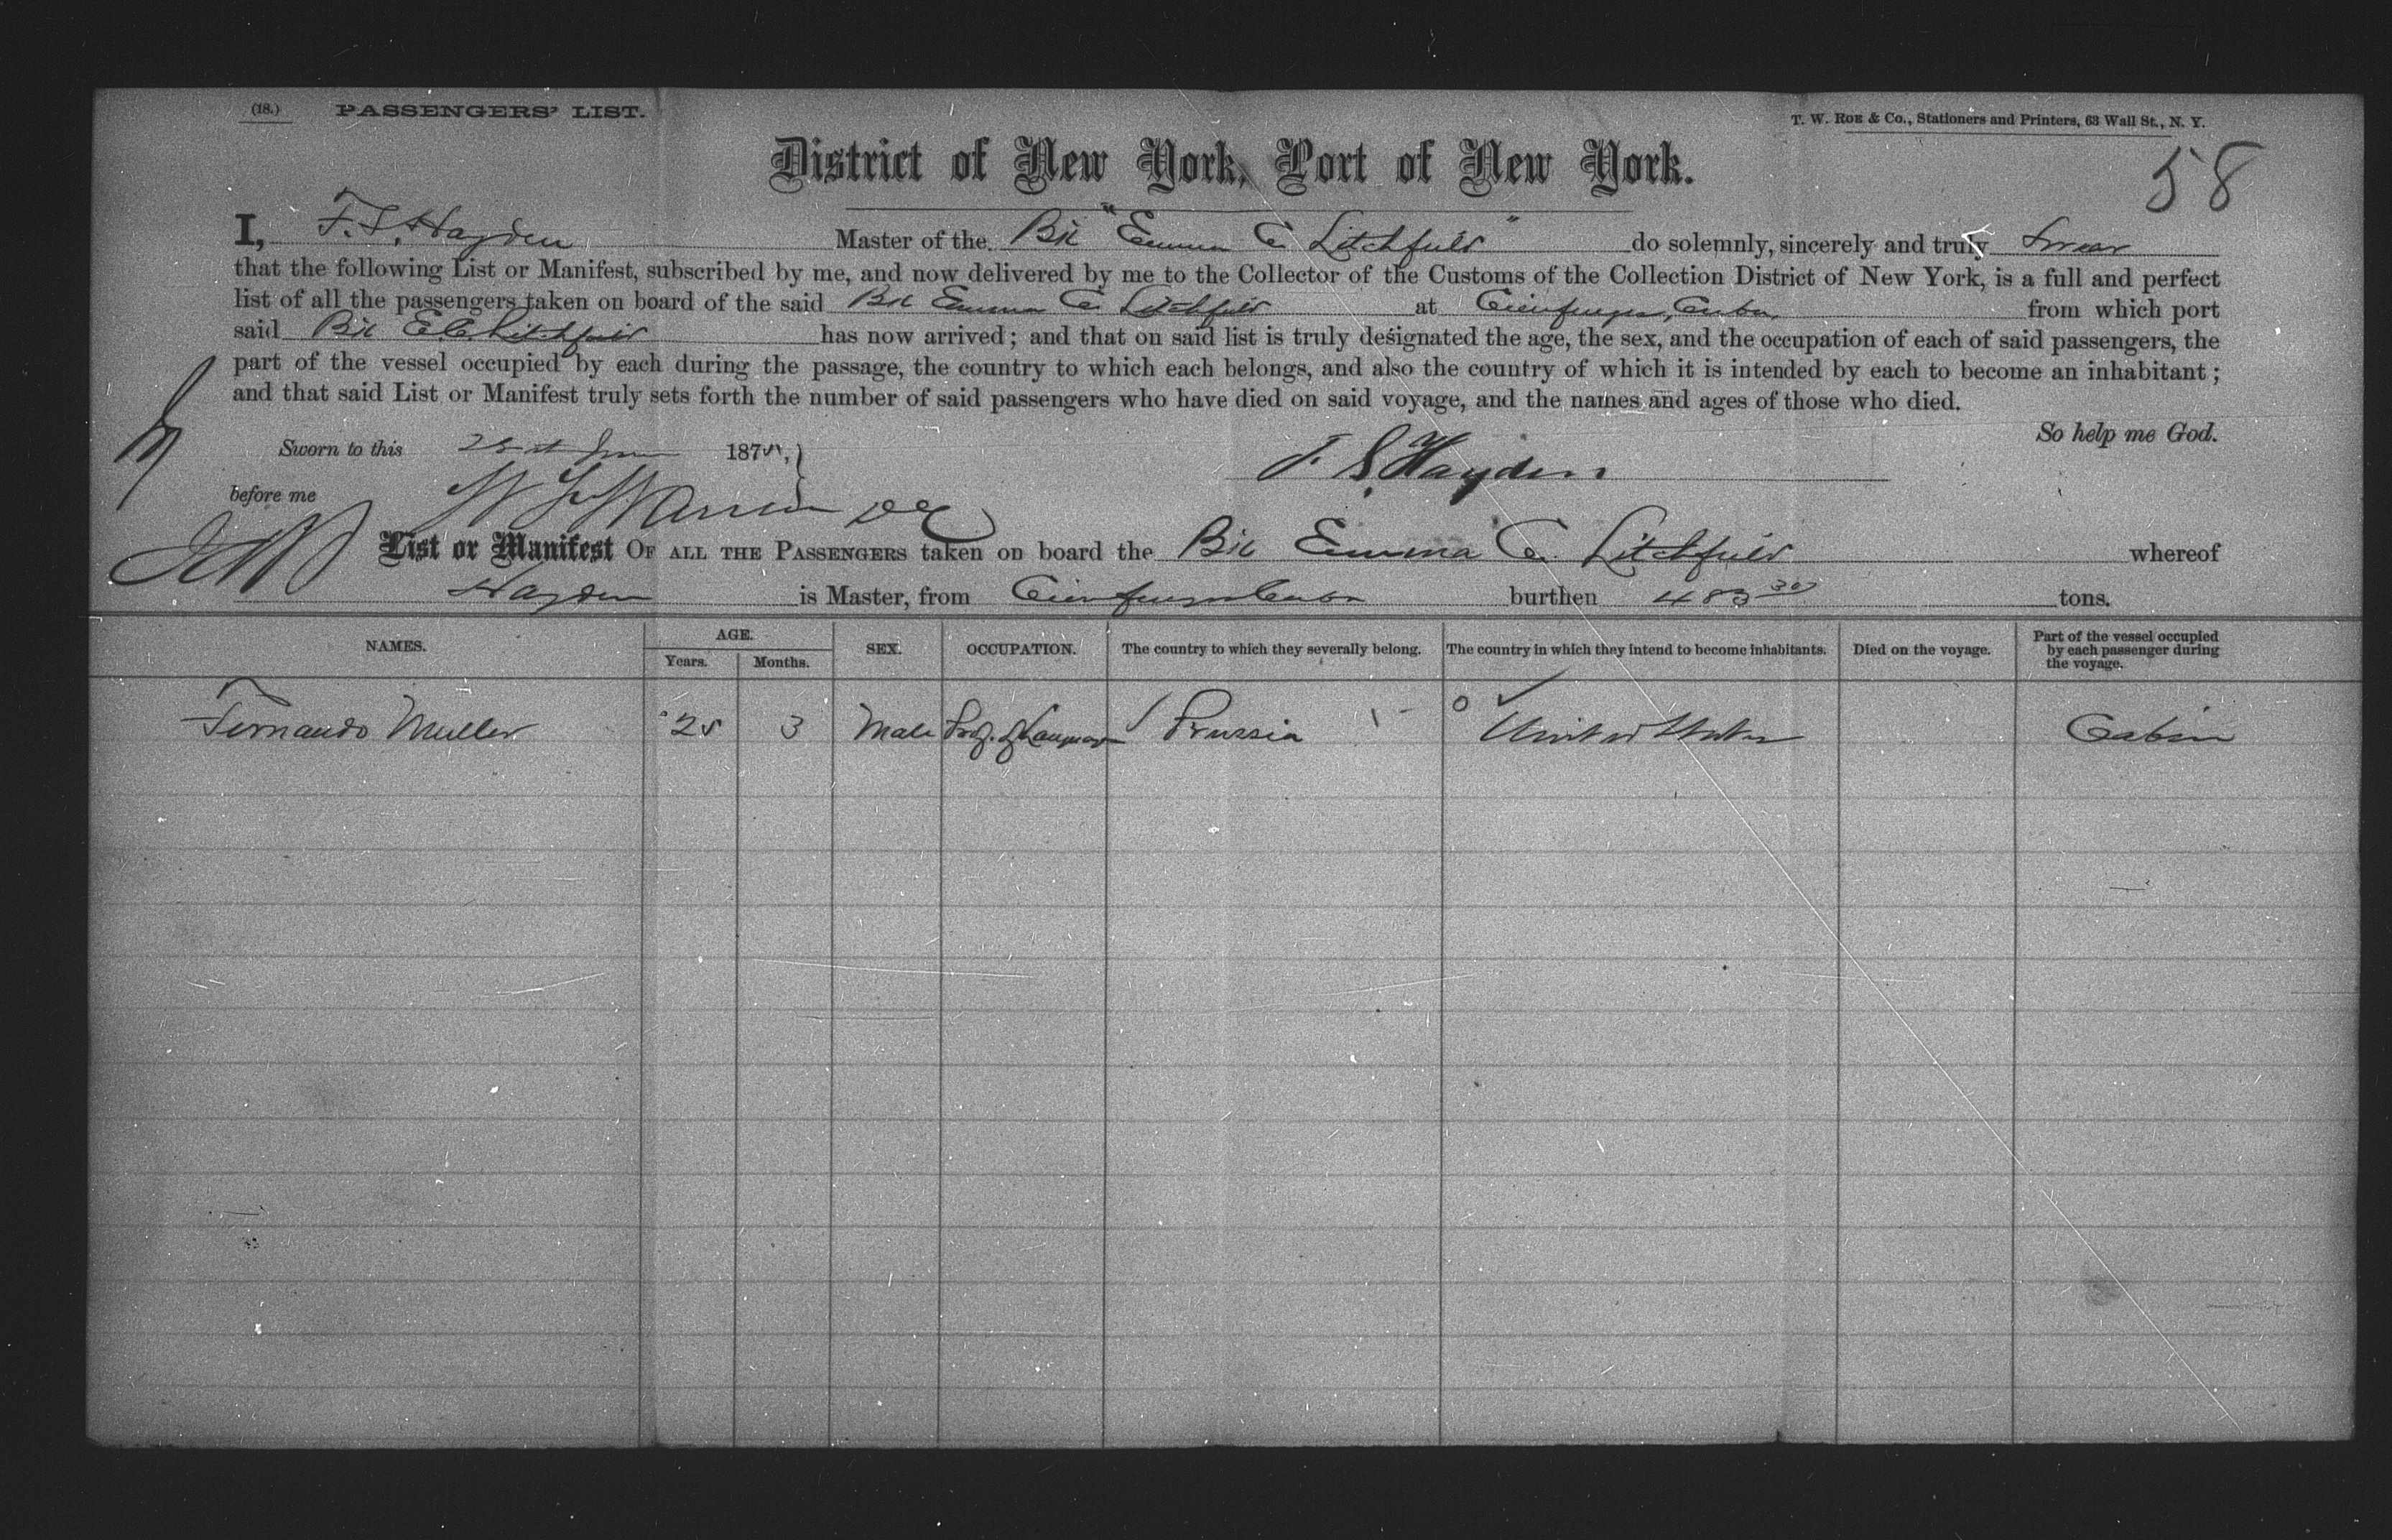 (18.) PASSENGERS' LIST. T. W. ROE & Co., Stationers and Printers, 63 Wall St., N. Y.
District of New York, Port of New York.
58
I, F. S. Hayden Master of the Bk "Emma C. Litchfield" do solemnly, sincerely and truly Swear
that the following List or Manifest, subscribed by me, and now delivered by me to the Collector of the Customs of the Collection District of New York, is a full and perfect
list of all the passengers taken on board of the said Bk Emma C. Litchfield at Cienfuegos, Cuba, from which port
said Bk E. C. Litchfield has now arrived; and that on said list is truly designated the age, the sex, and the occupation of each of said passengers, the
part of the vessel occupied by each during the passage, the country to which each belongs, and also the country of which it is intended by each to become an inhabitant;
and that said List or Manifest truly sets forth the number of said passengers who have died on said voyage, and the names and ages of those who died.
So help me God.
Sworn to this June 187
F. S. Hayden
before me
List or Manifest OF ALL THE PASSENGERS taken on board the Bk Emma C. Litchfield whereof
Hayden is Master, from Cienfuegos Cuba burthen 483 30 tons.
NAMES. AGE. Years. Months. SEX. OCCUPATION. The country to which they severally belong. The country in which they intend to become inhabitants. Died on the voyage. Part of the vessel occupied by each passenger during the voyage.
Fernando Muller 25 3 Male Prof. of Languages Prussia United States Cabin